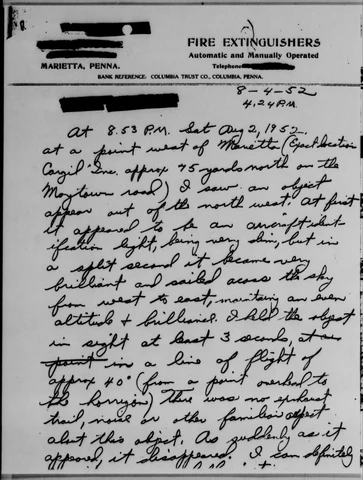 FIRE EXTINGUISHERS
Automatic and Manually Operated
MARIETTA, PENNA.
Telephone
BANK REFERENCE: COLUMBIA TRUST CO., COLUMBIA, PENNA.
8-4-52
4.24 P.M.
At 8.53 P.M. Sat Aug 2, 1952
at a point west of Marietta (Exact location
Cargil Inc. approx 75 yards north on the
Maytown road) I saw an object
appear out of the north west. At first
it appeared to be an aircraft ident-
ification light, being very dim, but in
a split second it became very
brilliant and sailed across the sky
from west to east, maintaing an even
altitude + brilliance. I held the object
in sight at least 3 seconds, at
point in a line of flight of
approx 40° (from a point overhead to
the horrizon) There was no exhaust
trail, noise or other familiar object
about this object. As suddenly as it
appeared, it disappeared. I can definitely